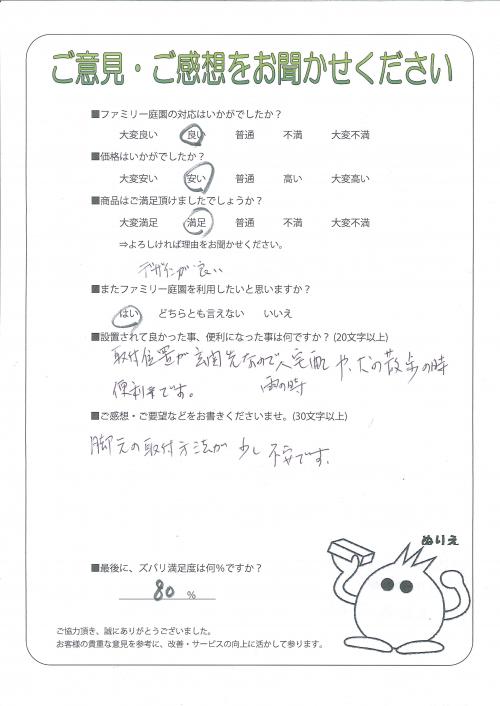 ご意見・ご感想をお聞かせください
■ファミリー庭園の対応はいかがでしたか？
大変良い 良い 普通 不満 大変不満
■価格はいかがでしたか？
大変安い 安い 普通 高い 大変高い
■商品はご満足頂けましたでしょうか？
大変満足 満足 普通 不満 大変不満
⇒よろしければ理由をお聞かせください。
デザインが良い
■またファミリー庭園を利用したいと思いますか？
はい どちらとも言えない いいえ
■設置されて良かった事、便利になった事は何ですか？(20文字以上)
取付位置が玄関先なので、宅配や、犬の散歩の時
便利です。 雨の時
■ご感想・ご要望などをお書きくださいませ。(30文字以上)
脚元の取付方法が少し不安です。
ぬりえ
■最後に、ズバリ満足度は何%ですか？
80 %
ご協力頂き、誠にありがとうございました。
お客様の貴重な意見を参考に、改善・サービスの向上に活かして参ります。